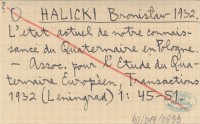 HALICKI Bronisław 1932.
L'etat actuel de notre connais-
sance du Quaternaire en Pologne.
— Assoc. pour l'Etude du Qua-
ternaire Européen, Transactions
1932 (Leningrad) 1: 45-51.